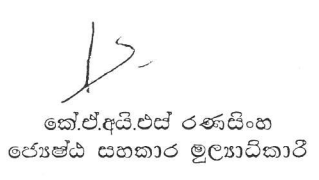 කේ.ඒ.අයි.එස් රණසිංහ
ජ්‍යෙෂ්ඨ සහකාර මූල්‍යාධිකාරී